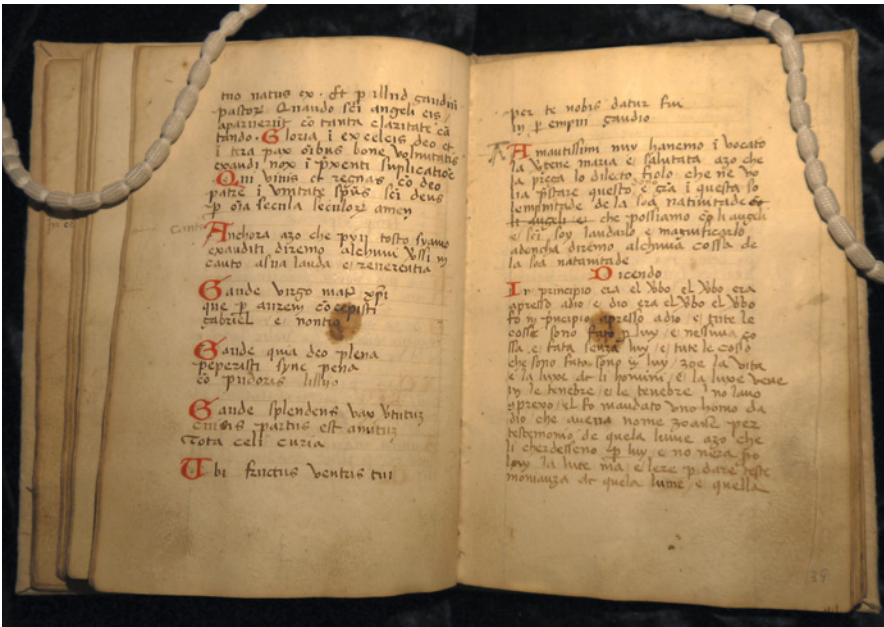 tuo natus ex. Et p illud gaudiū
pastorz Quando sci angeli eis
aparuerūt cō tanta claritate cā
tando. Gloria i excelsis deo et
i tera pax oibus bone volūtatis
exaudi nox i pxenti suplicatiōe
Qui vivis et regnas cō deo
patre i vnitate spūs sci deus
p oia secula seculorz amen
Canto
Anchora azo che pyu tosto syamo
exauditi diremo alchuni vssi in
canto alsua lauda e reverentia
Gaude virgo mat xpi
que p aurem cōcepisti
gabriel e nontio
Gaude quia deo plena
peperisti syne pena
cō pudoris lilio
Gaude splendens vax vtutuz
cuius partus est
Tota celi curia
Ubi fructus ventris tui
per te nobis datur frui
in p empni gaudio
Amantissimi nuy hanemo i vocato
la vgene maria e salutata azo che
la prega lo dilecto fiolo che ne vo
lia pstare questo dono e grā i questa so
lempnitade de la soa nativitade
li angeli e che possiamo cō li angeli
e sci soy laudarlo e magnificarlo
adoncha diremo alchuna cossa de
la soa natavitade
Dicendo
In principio era el vbo el vbo era
apresso adio e dio era el vbo el vbo
fo in pncipio apresso adio e tute le
cosse sono fato p luy e nessuna co
ssa e fata senza luy e tute le cosse
che sono fato sono in luy zoe la vita
e la luxe de li homini e la luxe vene
in le tenebre e le tenebre no lano
aprexo el fo mandato vno homo da
dio che avena nome zoane per
testimonio de quela lume azo che
li cherdesseno p luy e no nera fo
luy la luce ma e lere p dare teste
monianza de quela lume e quella
39